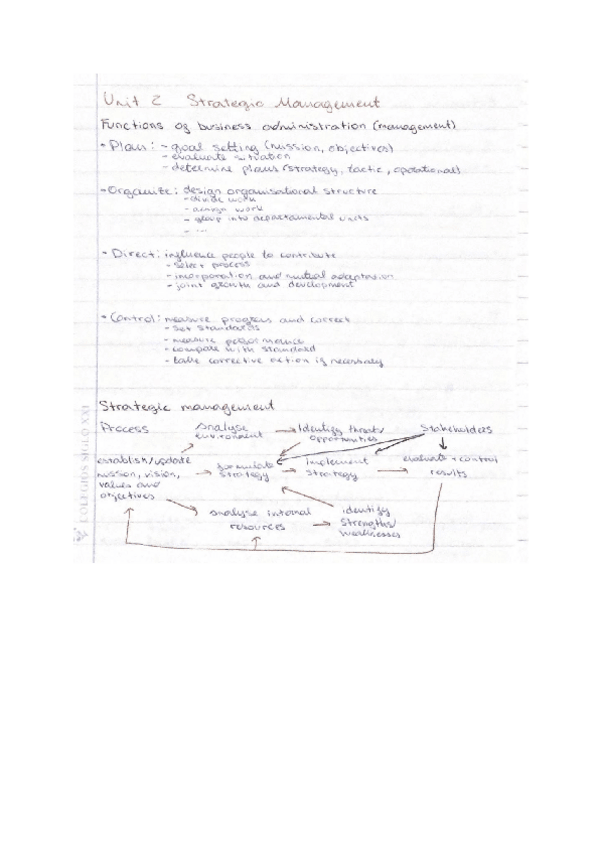 Unit 2 Strategic Management
Functions of business administration (management)
- Plan: - goal setting (mission, objectives)
- evaluate situation
- determine plans (strategy, tactic, operational)
- Organite: design organisational structure
- divide work
- assign work
- group into departamental units
- ...
- Direct: influence people to contribute
- select process
- incorporation and mutual adaptation
- joint growth and development
- Control: measure progress and correct
- set standards
- measure performance
- compare with standard
- take corrective action if necessary
Strategic management
Process
analyse environment
Identify threats/ opportunities
Stakeholders
establish/update mission, vision, values and objectives
formulate strategy
implement strategy
evaluate + control results
analyse internal resources
identify strengths/ weaknesses
COLEGIOS SIGLO XXI